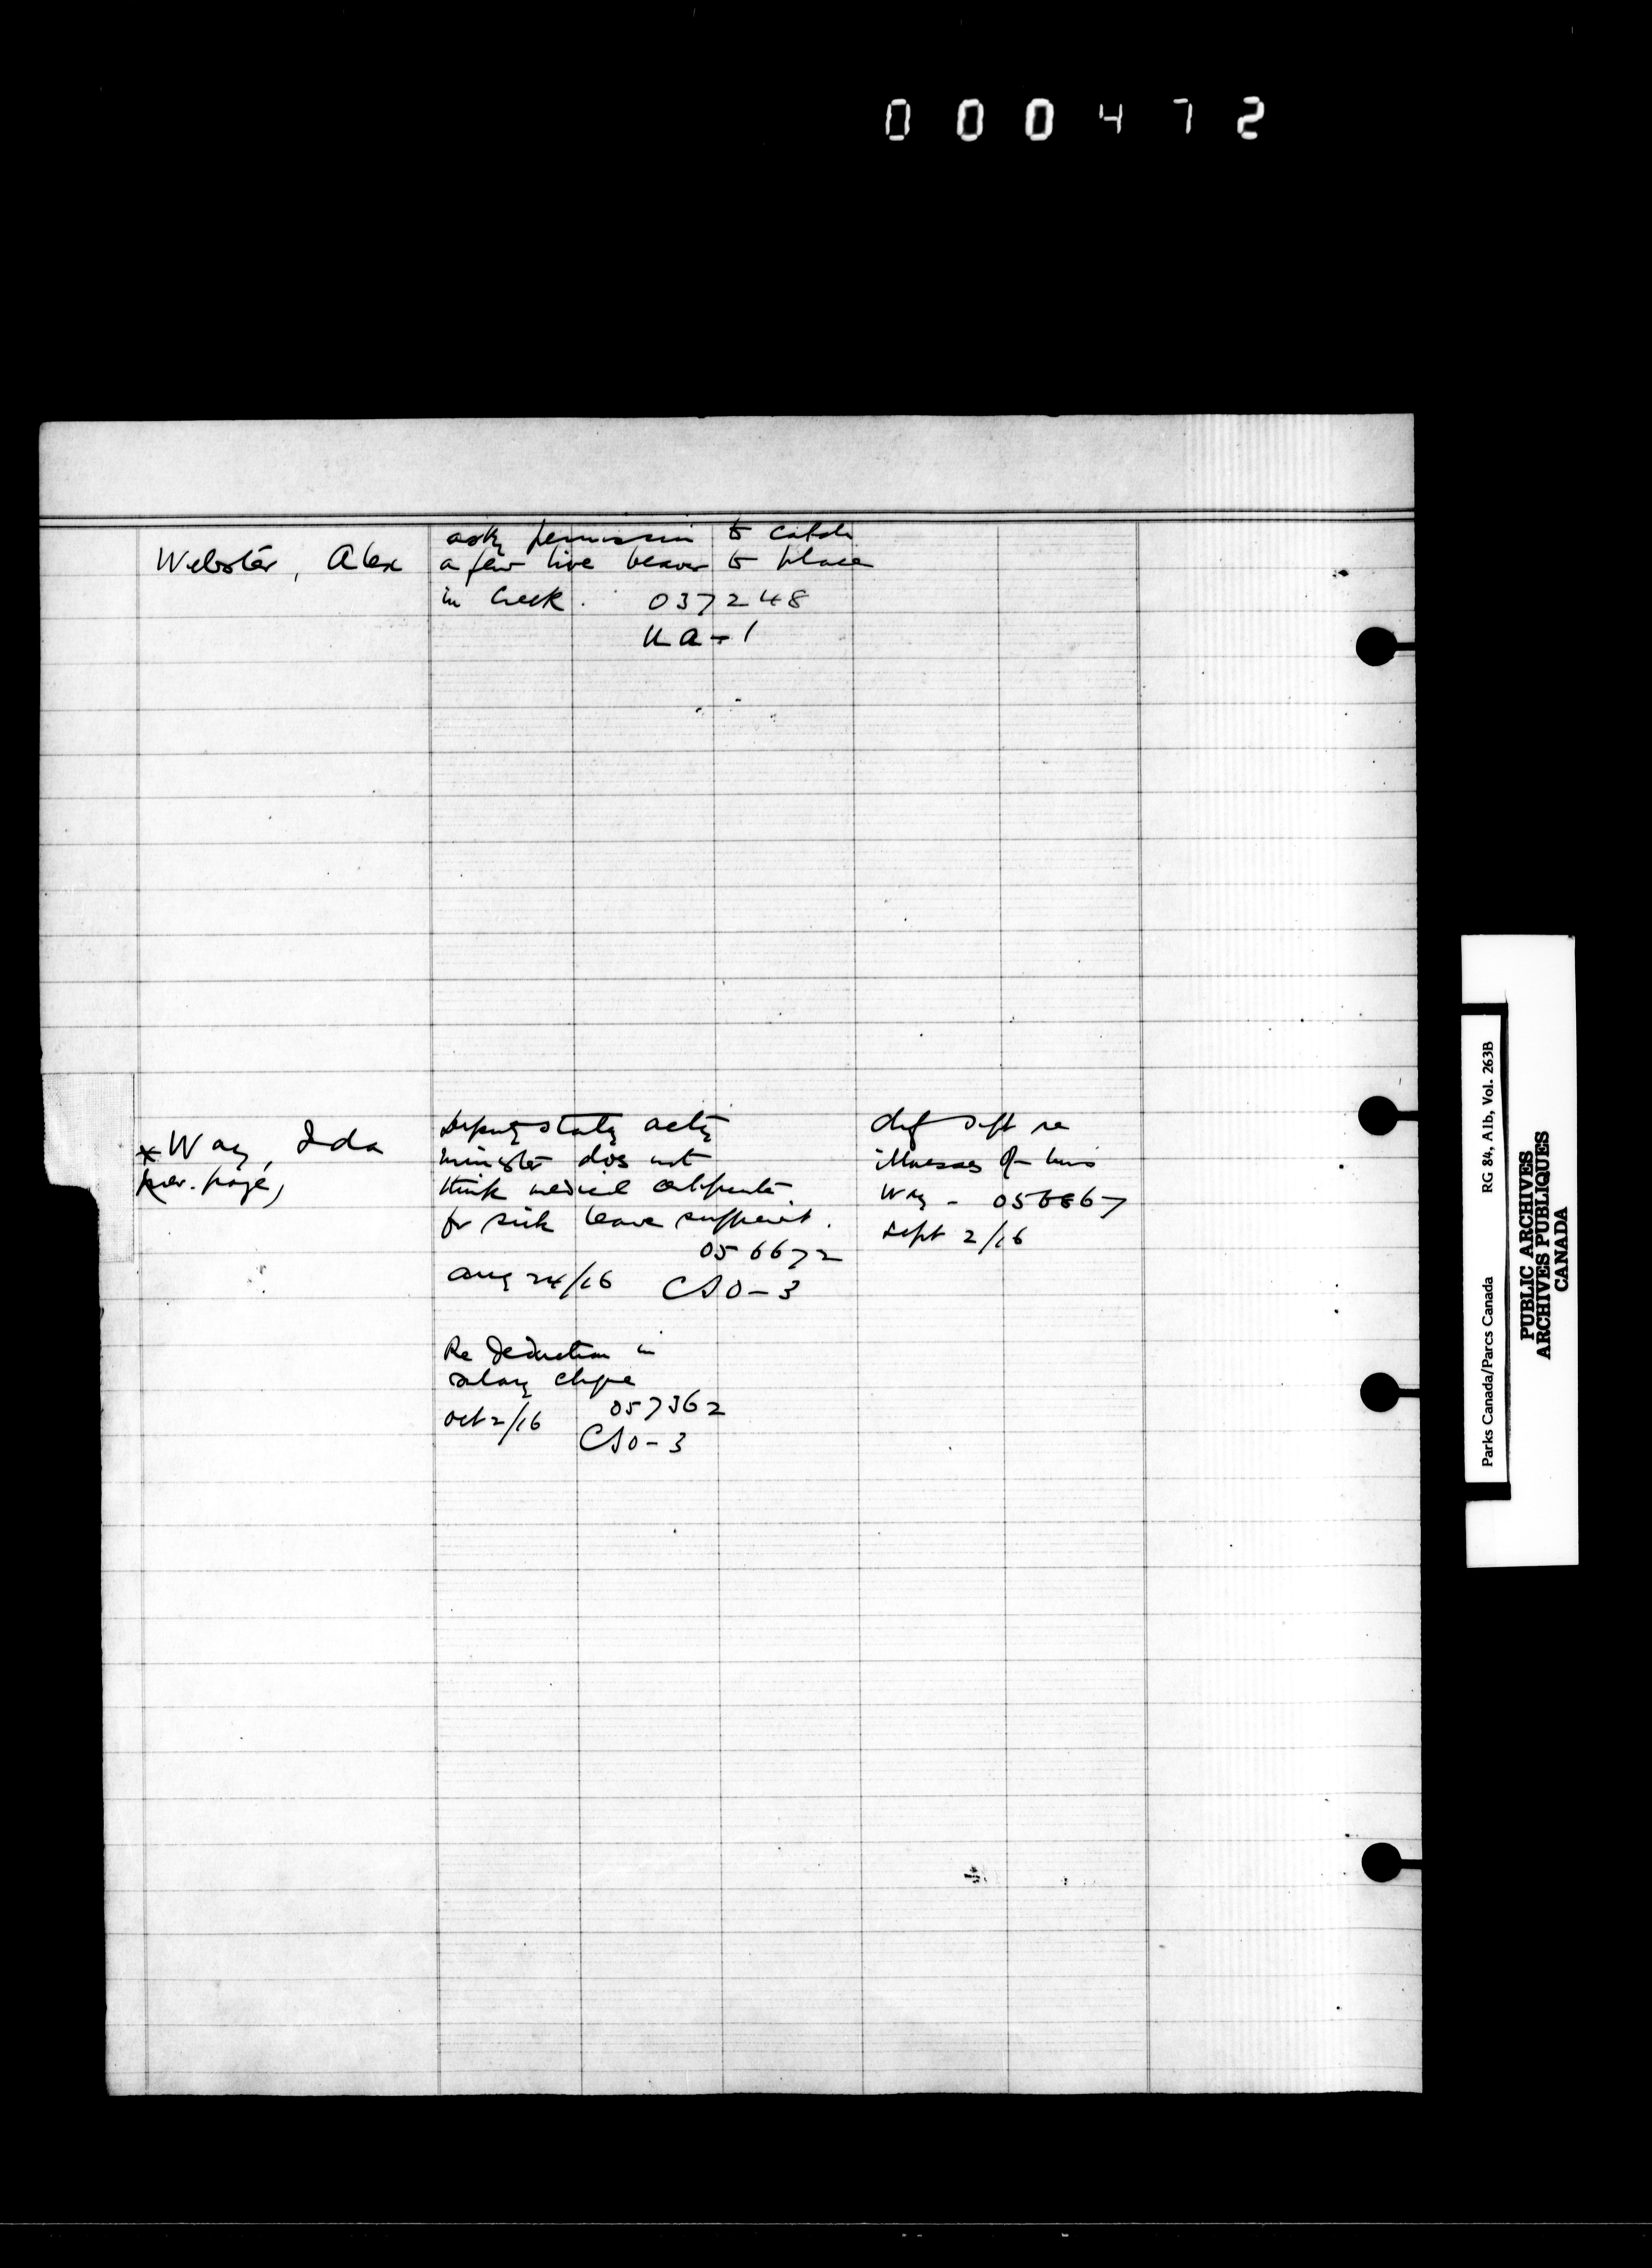 000472
Webster, Alex
askg permission to catch
a few live beaver to place
in Creek. 037248
U a - 1
* Way, Ida
prev. page)
Deputy statg actg
minister does not
think medical certificate
for sick leave sufficient.
056672
Aug 24/16 CSO-3
Re Deduction in
salary cheque
Oct 2/16 057362
CSO-3
Chf Supt re
illnesses of Miss
Way - 056867
Sept 2/16
Parks Canada/Parcs Canada RG 84, A1b, Vol. 263B
PUBLIC ARCHIVES
ARCHIVES PUBLIQUES
CANADA